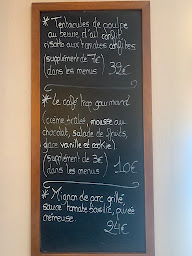 * Tentacules de poulpe
au beurre d'ail confit,
risotto aux tomates confites
(supplément de 7€)
dans les menus 32€
* Le café trop gourmand
(crème brûlée, mousse au
chocolat, salade de fruits,
glace vanille et cookie)
(supplément de 3€)
dans les menus 10€
* Mignon de porc grillé,
sauce tomate basilic, purée
crémeuse.
24€